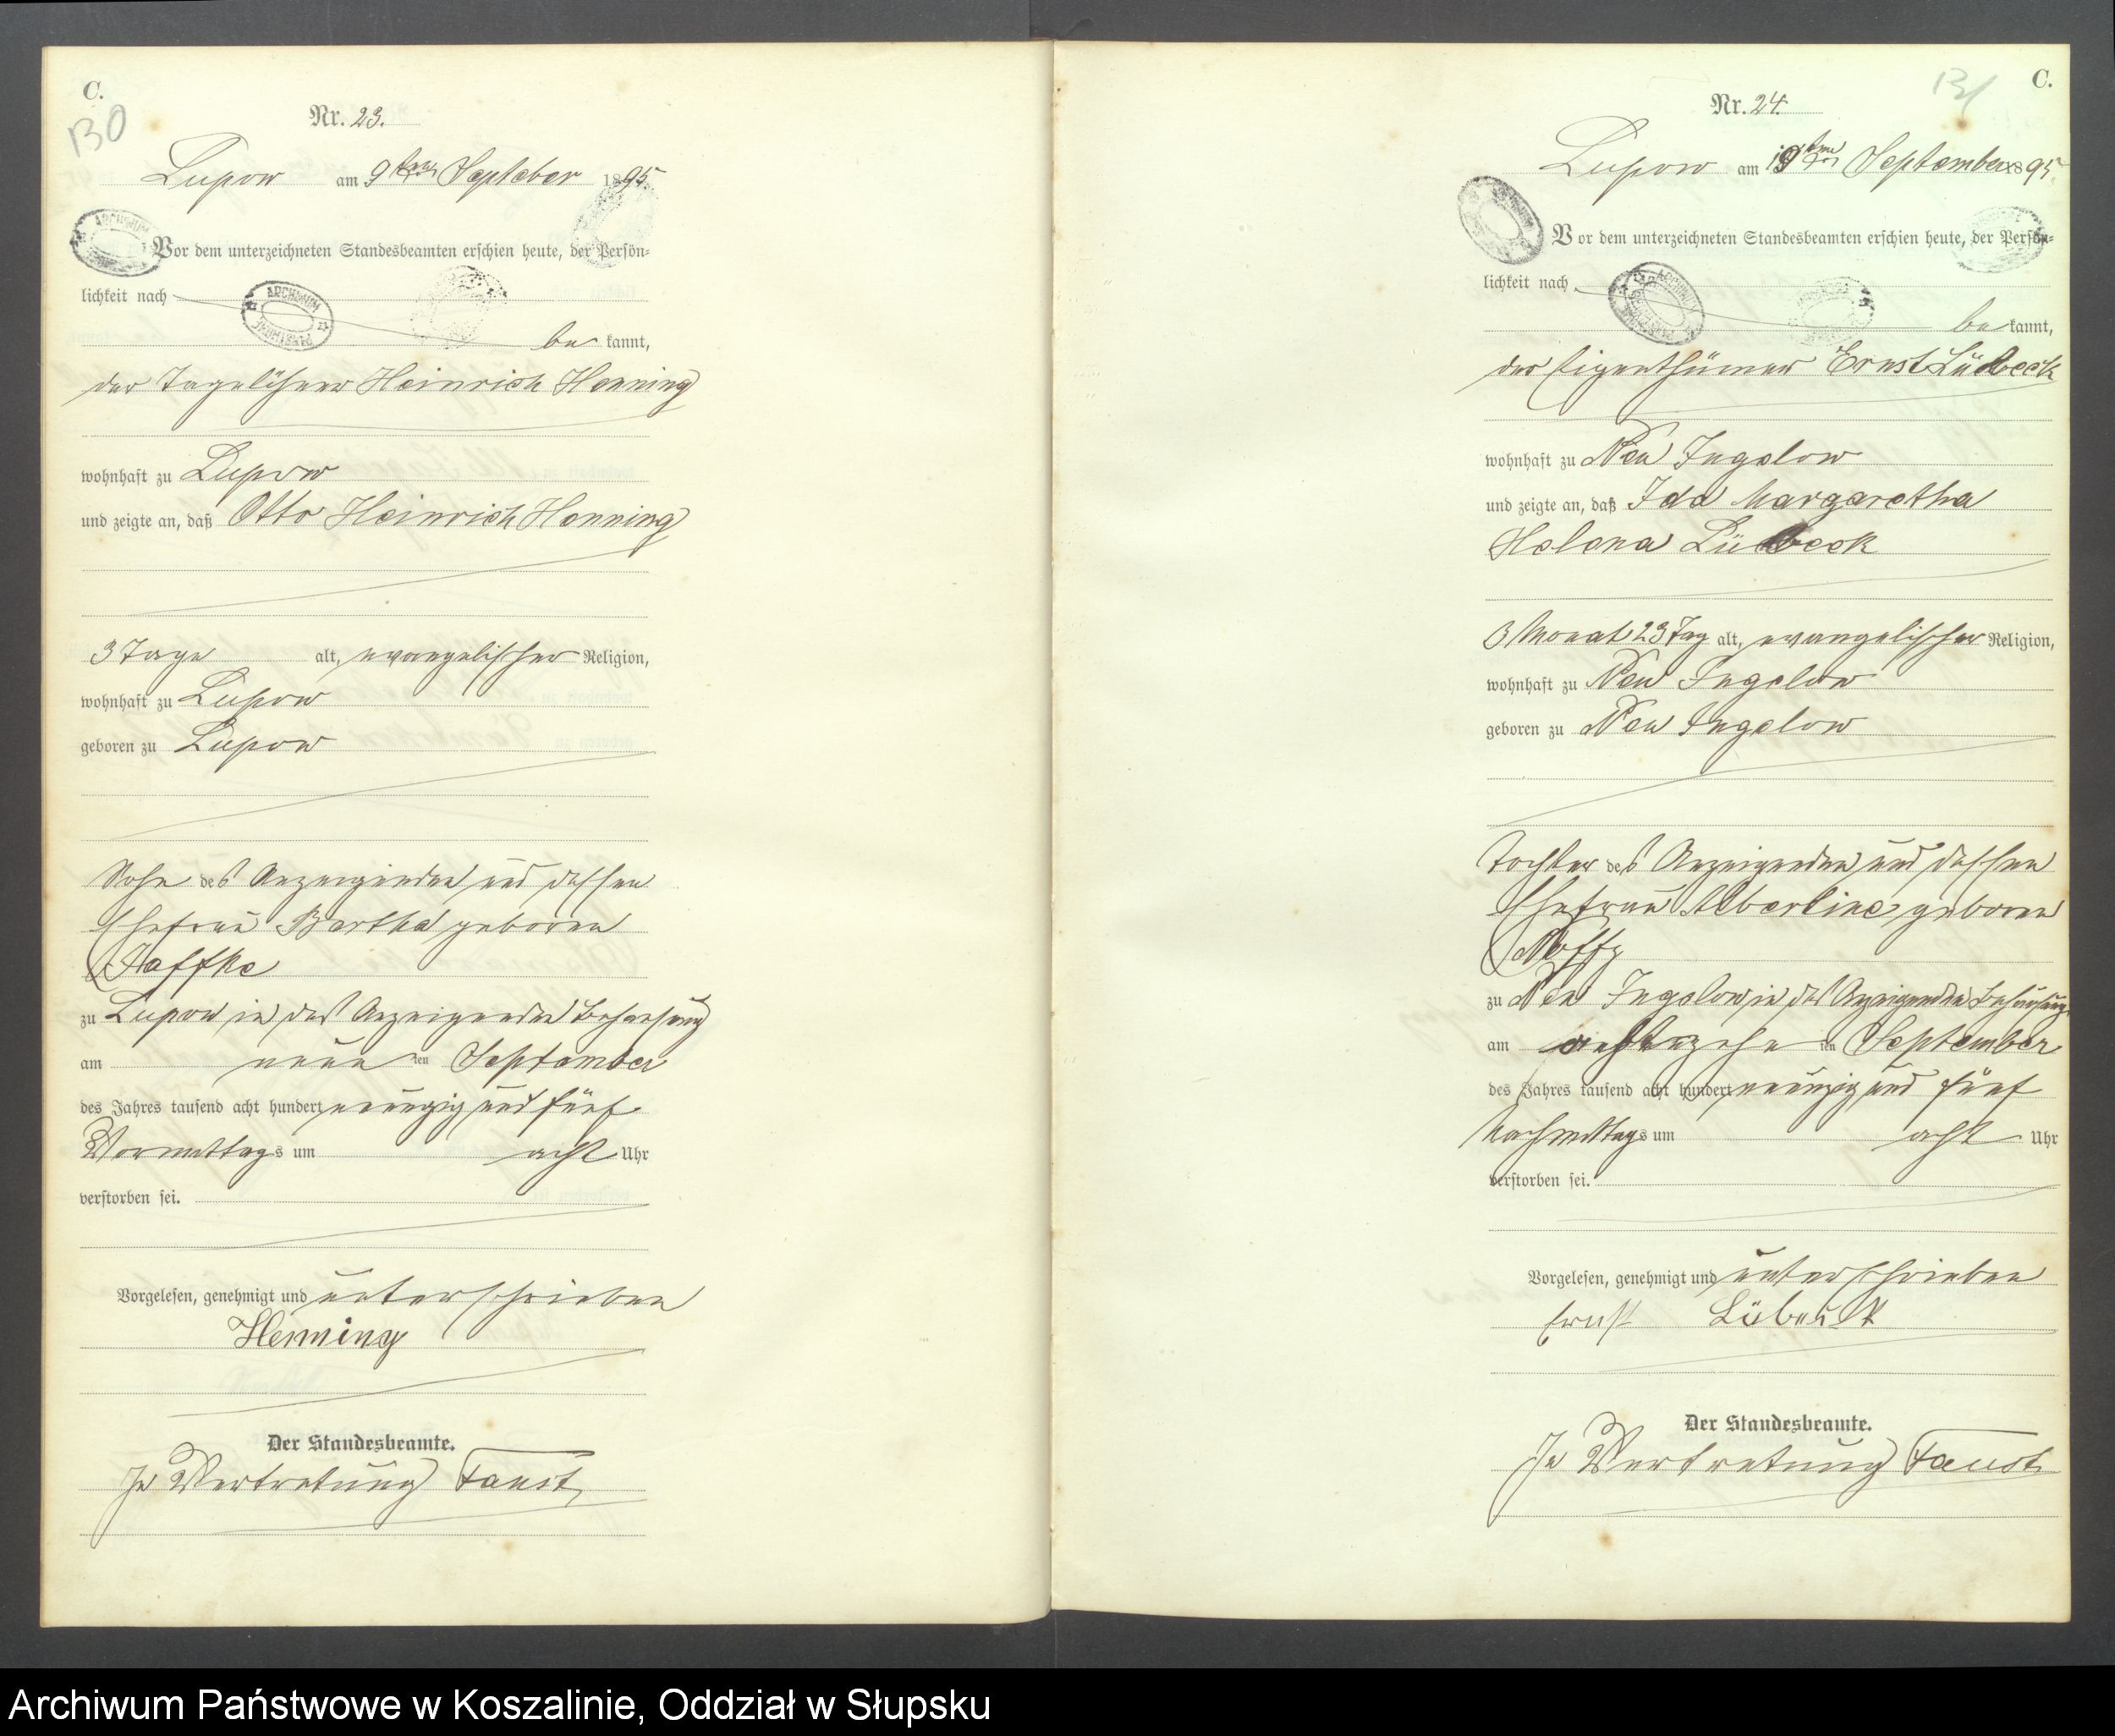 C.
130
Nr. 23.
Lupow am 9ten September 1895
Vor dem unterzeichneten Standesbeamten erschien heute, der Persön-
lichkeit nach
be kannt,
der Tagelöhner Heinrich Henning
wohnhaft zu Lupow
und zeigte an, daß Otto Heinrich Henning
3 Tage alt, evangelischer Religion,
wohnhaft zu Lupow
geboren zu Lupow
Sohn des Anzeigenden und dessen
Ehefrau Bertha geboren
Haffke
zu Lupow in des Anzeigenden Behausung
am neun ten September
des Jahres tausend acht hundert neunzig und fünf
Vormittags um acht Uhr
verstorben sei.
Vorgelesen, genehmigt und unterschrieben
Henning
Der Standesbeamte.
In Vertretung Faust
C.
131
Nr. 24.
Lupow am 19ten September 1895
Vor dem unterzeichneten Standesbeamten erschien heute, der Persön-
lichkeit nach
be kannt,
der Eigenthümer Ernst Lübeck
wohnhaft zu Neu Jugelow
und zeigte an, daß Ida Margaretha
Helena Lübeck
3 Monat 23 Tag alt, evangelischer Religion,
wohnhaft zu Neu Jugelow
geboren zu Neu Jugelow
Tochter des Anzeigenden und dessen
Ehefrau Albertine geboren
Noffz
zu Neu Jugelow in des Anzeigenden Behausung
am achtzehn ten September
des Jahres tausend acht hundert neunzig und fünf
Nachmittags um acht Uhr
verstorben sei.
Vorgelesen, genehmigt und unterschrieben
Ernst Lübeck
Der Standesbeamte.
In Vertretung Faust
Archiwum Państwowe w Koszalinie, Oddział w Słupsku